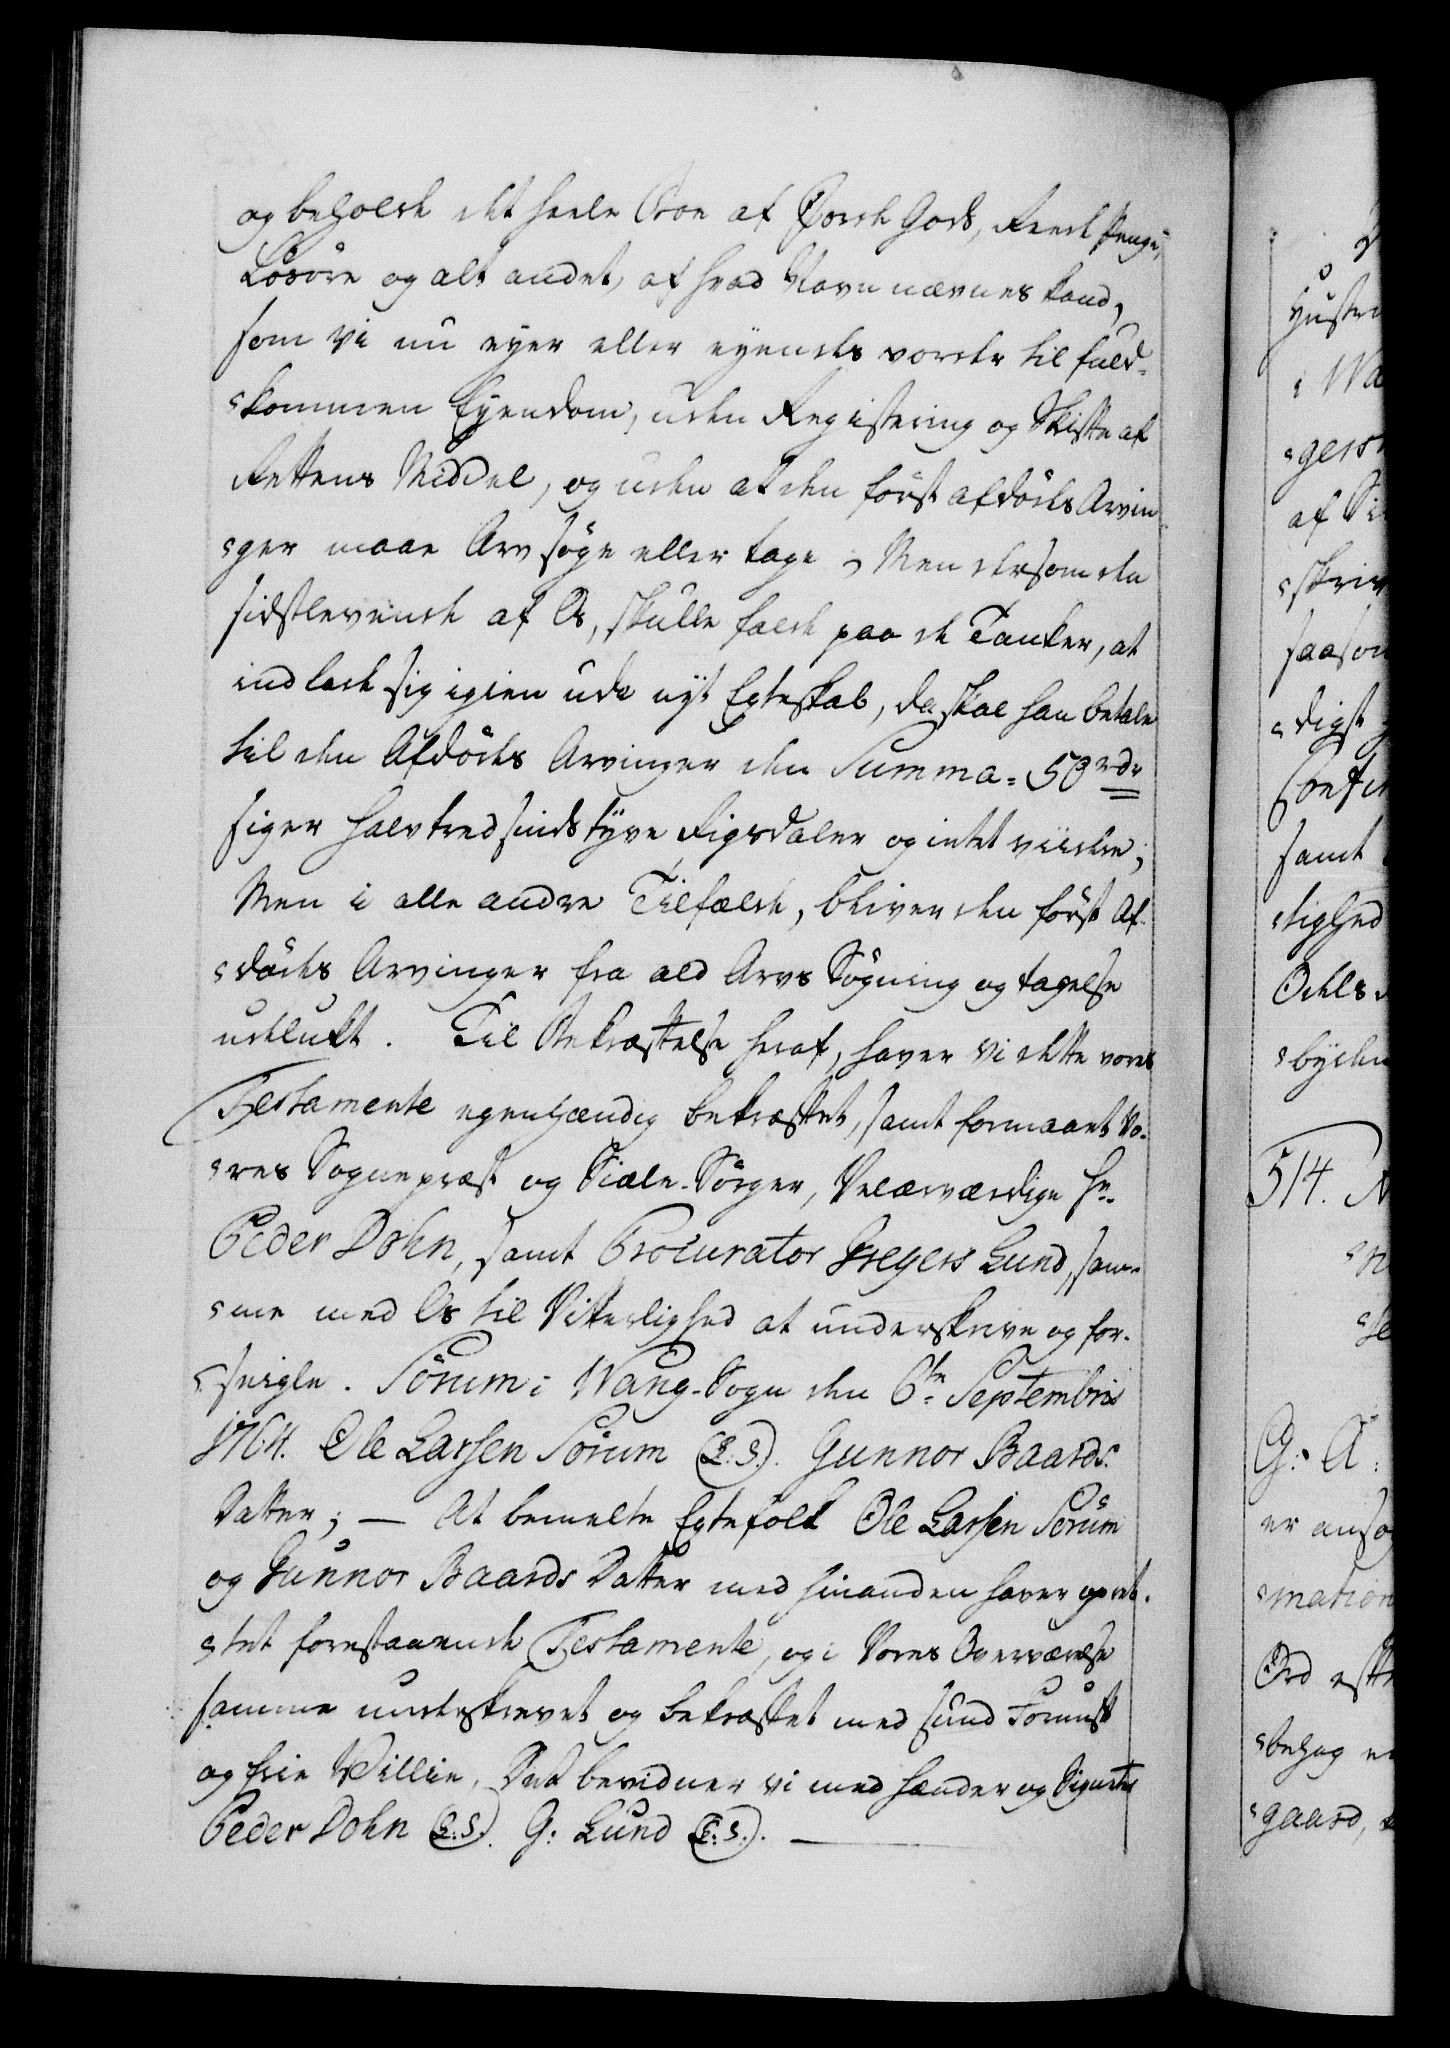 og beholde det heele Boe af Jorde Gods, Reede Penge,
Løsøre og alt andet, af hvad Navn nævnes kand,
som vi nu eyer eller eyendes vorder til fuld-
kommen Eyendom, uden Registering og Skifte af
Rettens Middel, og uden at den først afdødes Arvin
ger maae Arv søge eller tage; Men dersom den
sidstlevende af Os, skulle falde paa de Tanker, at
indlade sig igien udi nyt Egteskab, da skal han betale
til den Afdødes Arvinger den Summa = 50 rdr
siger halvtredsindstyve Rigsdaler og intet viidere;
Men i alle andre Tilfælde, bliver den først Af-
dødes Arvinger fra ald Arvs Søgning og tagelse
udelukt. Til Bekræftelse heraf, haver vi dette vores
Testamente egenhændig bekræftet, samt formaaet vo-
res Sognepræst og Siæle-Sørger, Velærværdige Hr.
Peder Dohn, samt Procurator Gregers Lund, sam-
me med Os til Vitterlighed at underskrive og for-
seigle. Sörum i Wang-Sogn den 6te Septembris
1764. Ole Larsen Sörum (L.S.). Gunnor Baards
Datter; — At bemelte Egtefolk Ole Larsen Sörum
og Gunnor Baards Datter med hinanden haver opret-
tet forestaaende Testamente, og i Vores Overværelse
samme underskrevet og bekræftet med sund Fornuft
og frie Willie, Det bevidner vi med Hænder og Signeter
Peder Dohn (L.S.). G: Lund (L:S.). —
Hustru
Wa
gers
af
skriv
saaso
digst
Conf
samt
tighed
byde
514.
G: A:
er
mation
Ord
behag
gaard,